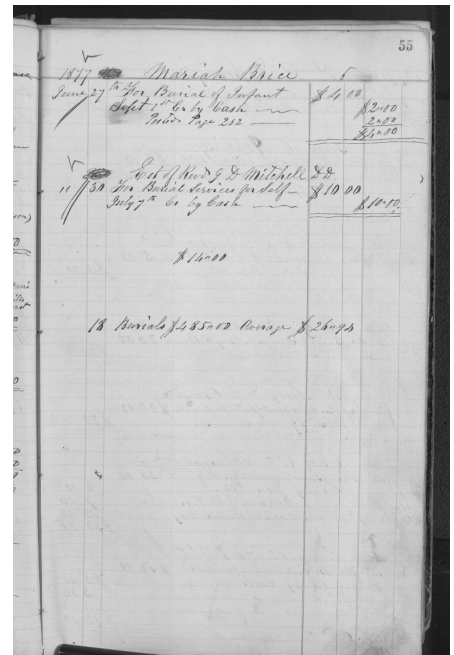 55
1877 Mariah Brice
June 27th For Burial of Infant $4 00
Sept 1st Cr by Cash $2"00
Posted Page 212 2"00
$4"00
Est of Revd G D Mitchell DD
" 30 For Burial Services for Self $10 00
July 7th Cr by Cash $10"00
$14"00
18 Burials $485"00 Average $26"94